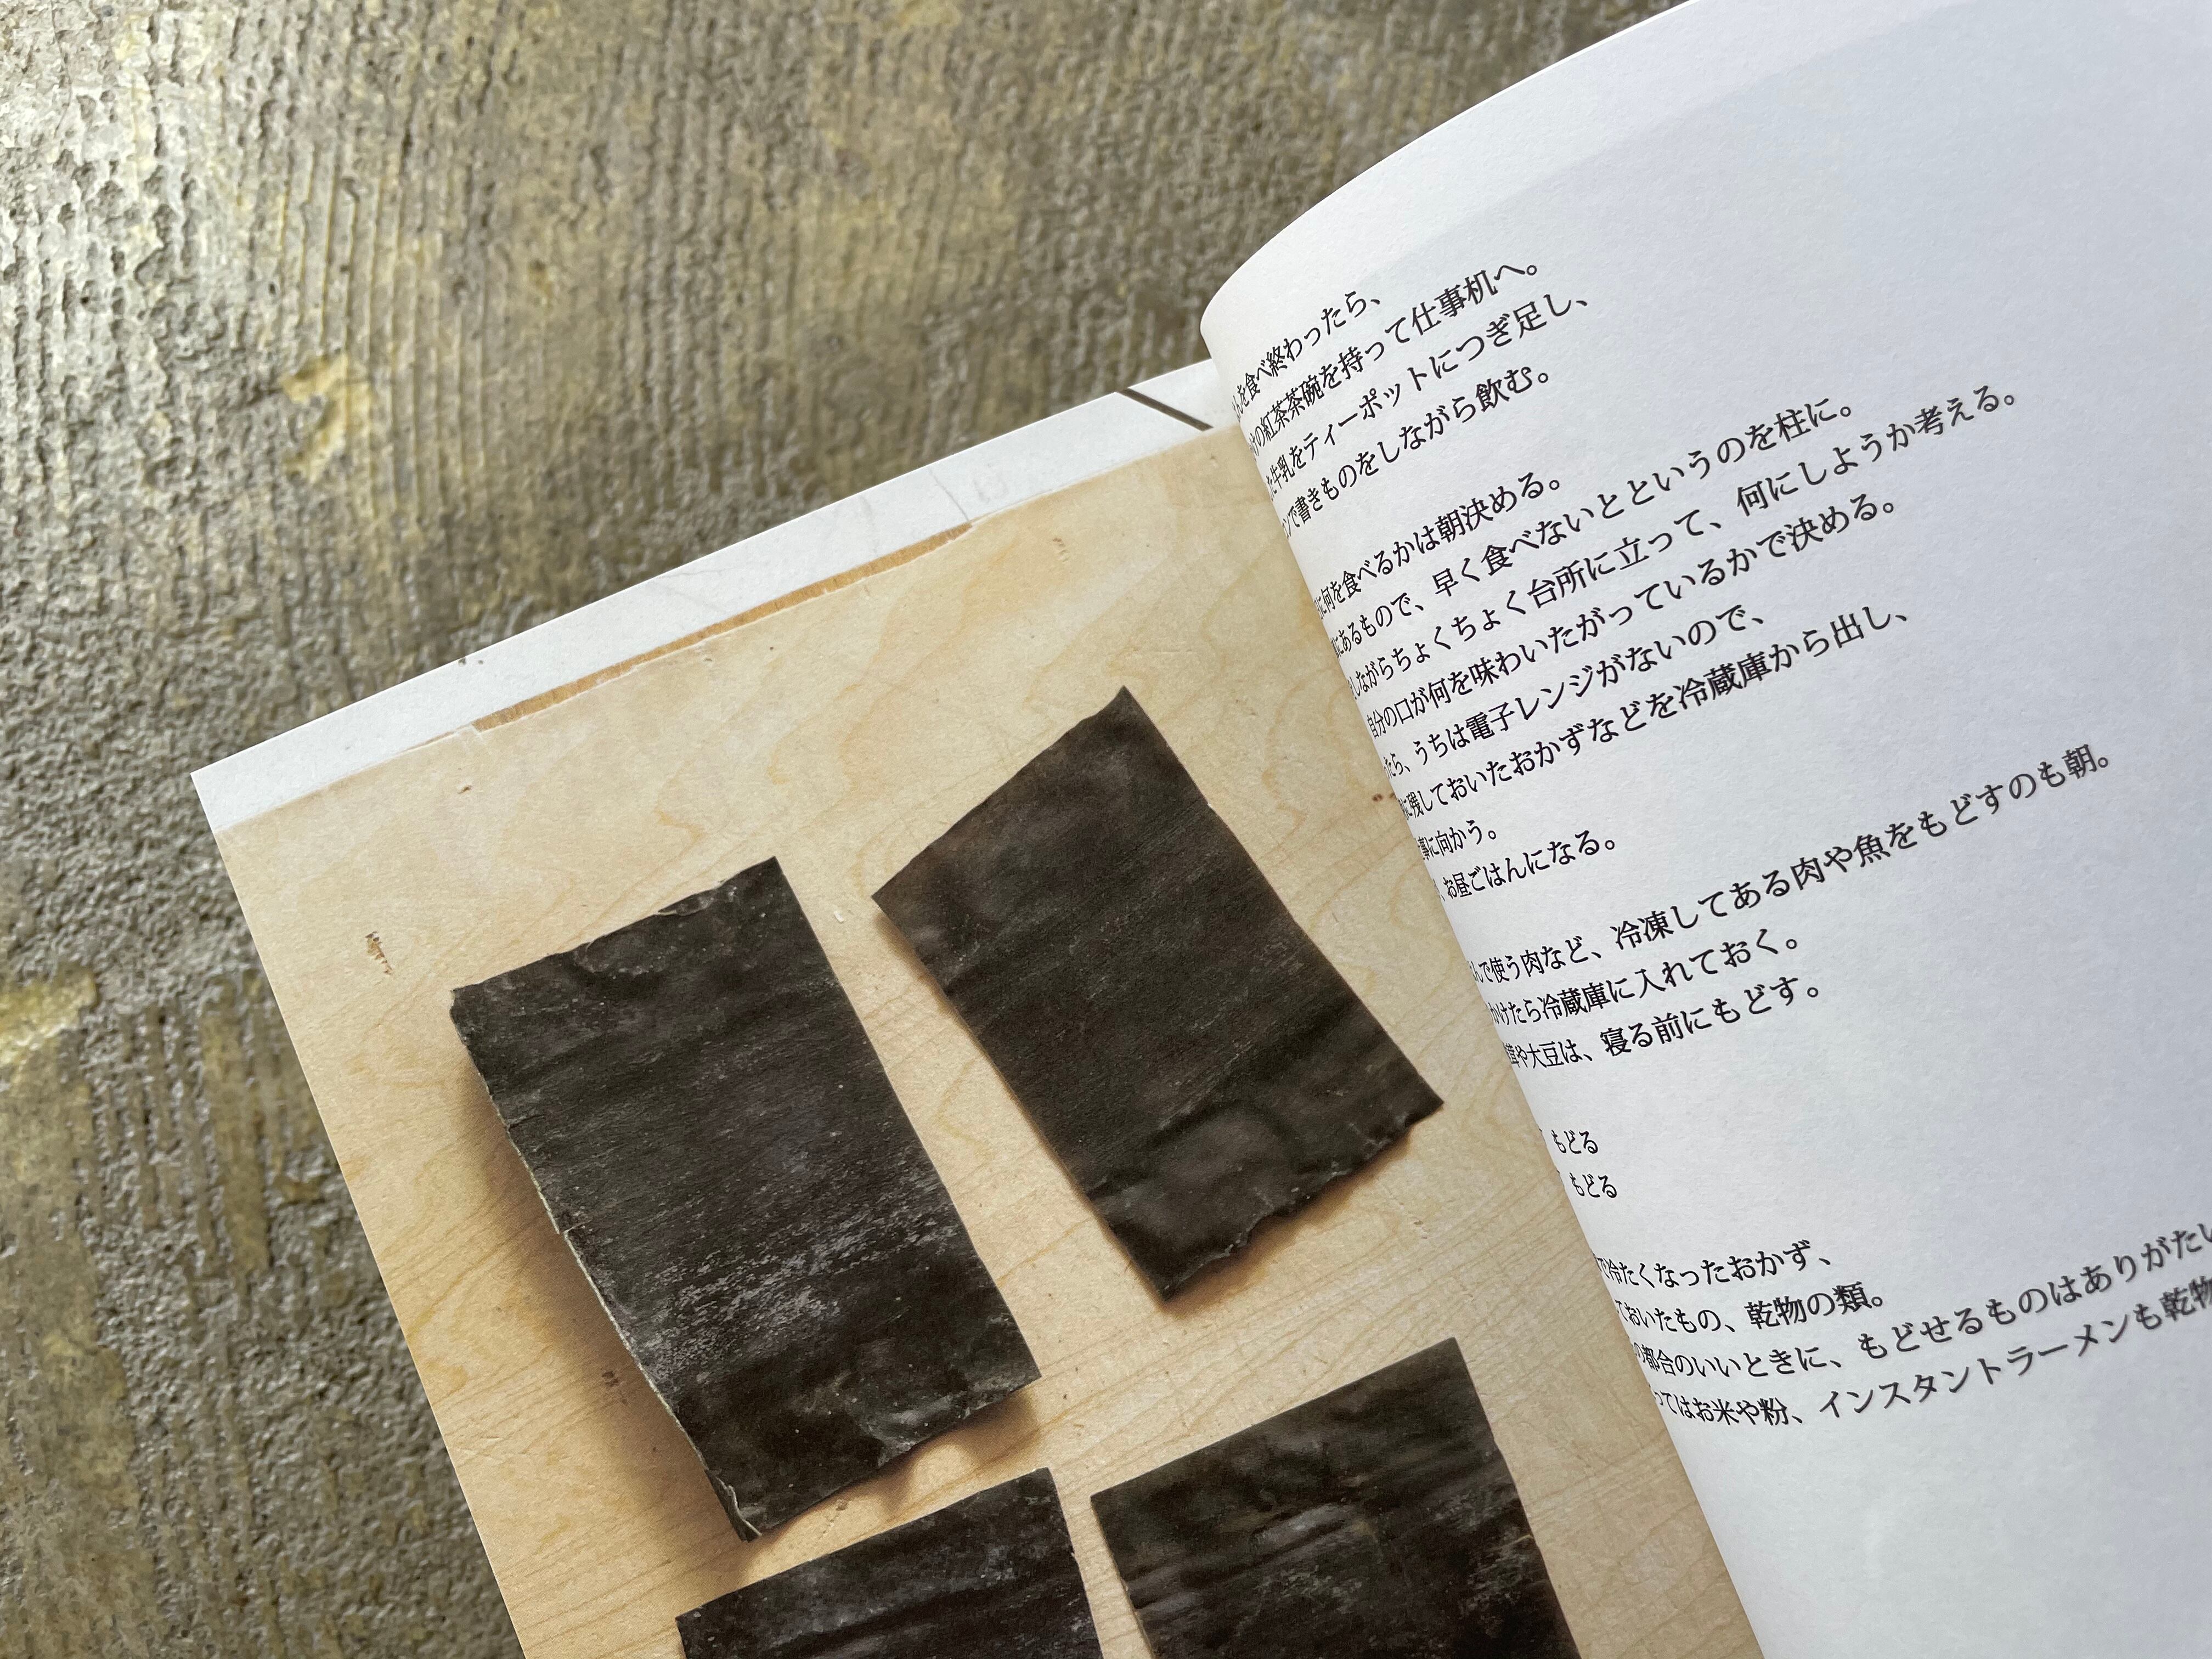 を食べ終わったら、
の紅茶茶碗を持って仕事机へ。
牛乳をティーポットにつぎ足し、
で書きものをしながら飲む。
何を食べるかは朝決める。
にあるもので、早く食べないとというのを柱に。
しながらちょくちょく台所に立って、何にしようか考える。
自分の口が何を味わいたがっているかで決める。
たら、うちは電子レンジがないので、
に残しておいたおかずなどを冷蔵庫から出し、
事に向かう。
お昼ごはんになる。
んで使う肉など、冷凍してある肉や魚をもどすのも朝。
かけたら冷蔵庫に入れておく。
や大豆は、寝る前にもどす。
もどる
もどる
で冷たくなったおかず、
ておいたもの、乾物の類。
の都合のいいときに、もどせるものはありがたい
ってはお米や粉、インスタントラーメンも乾物